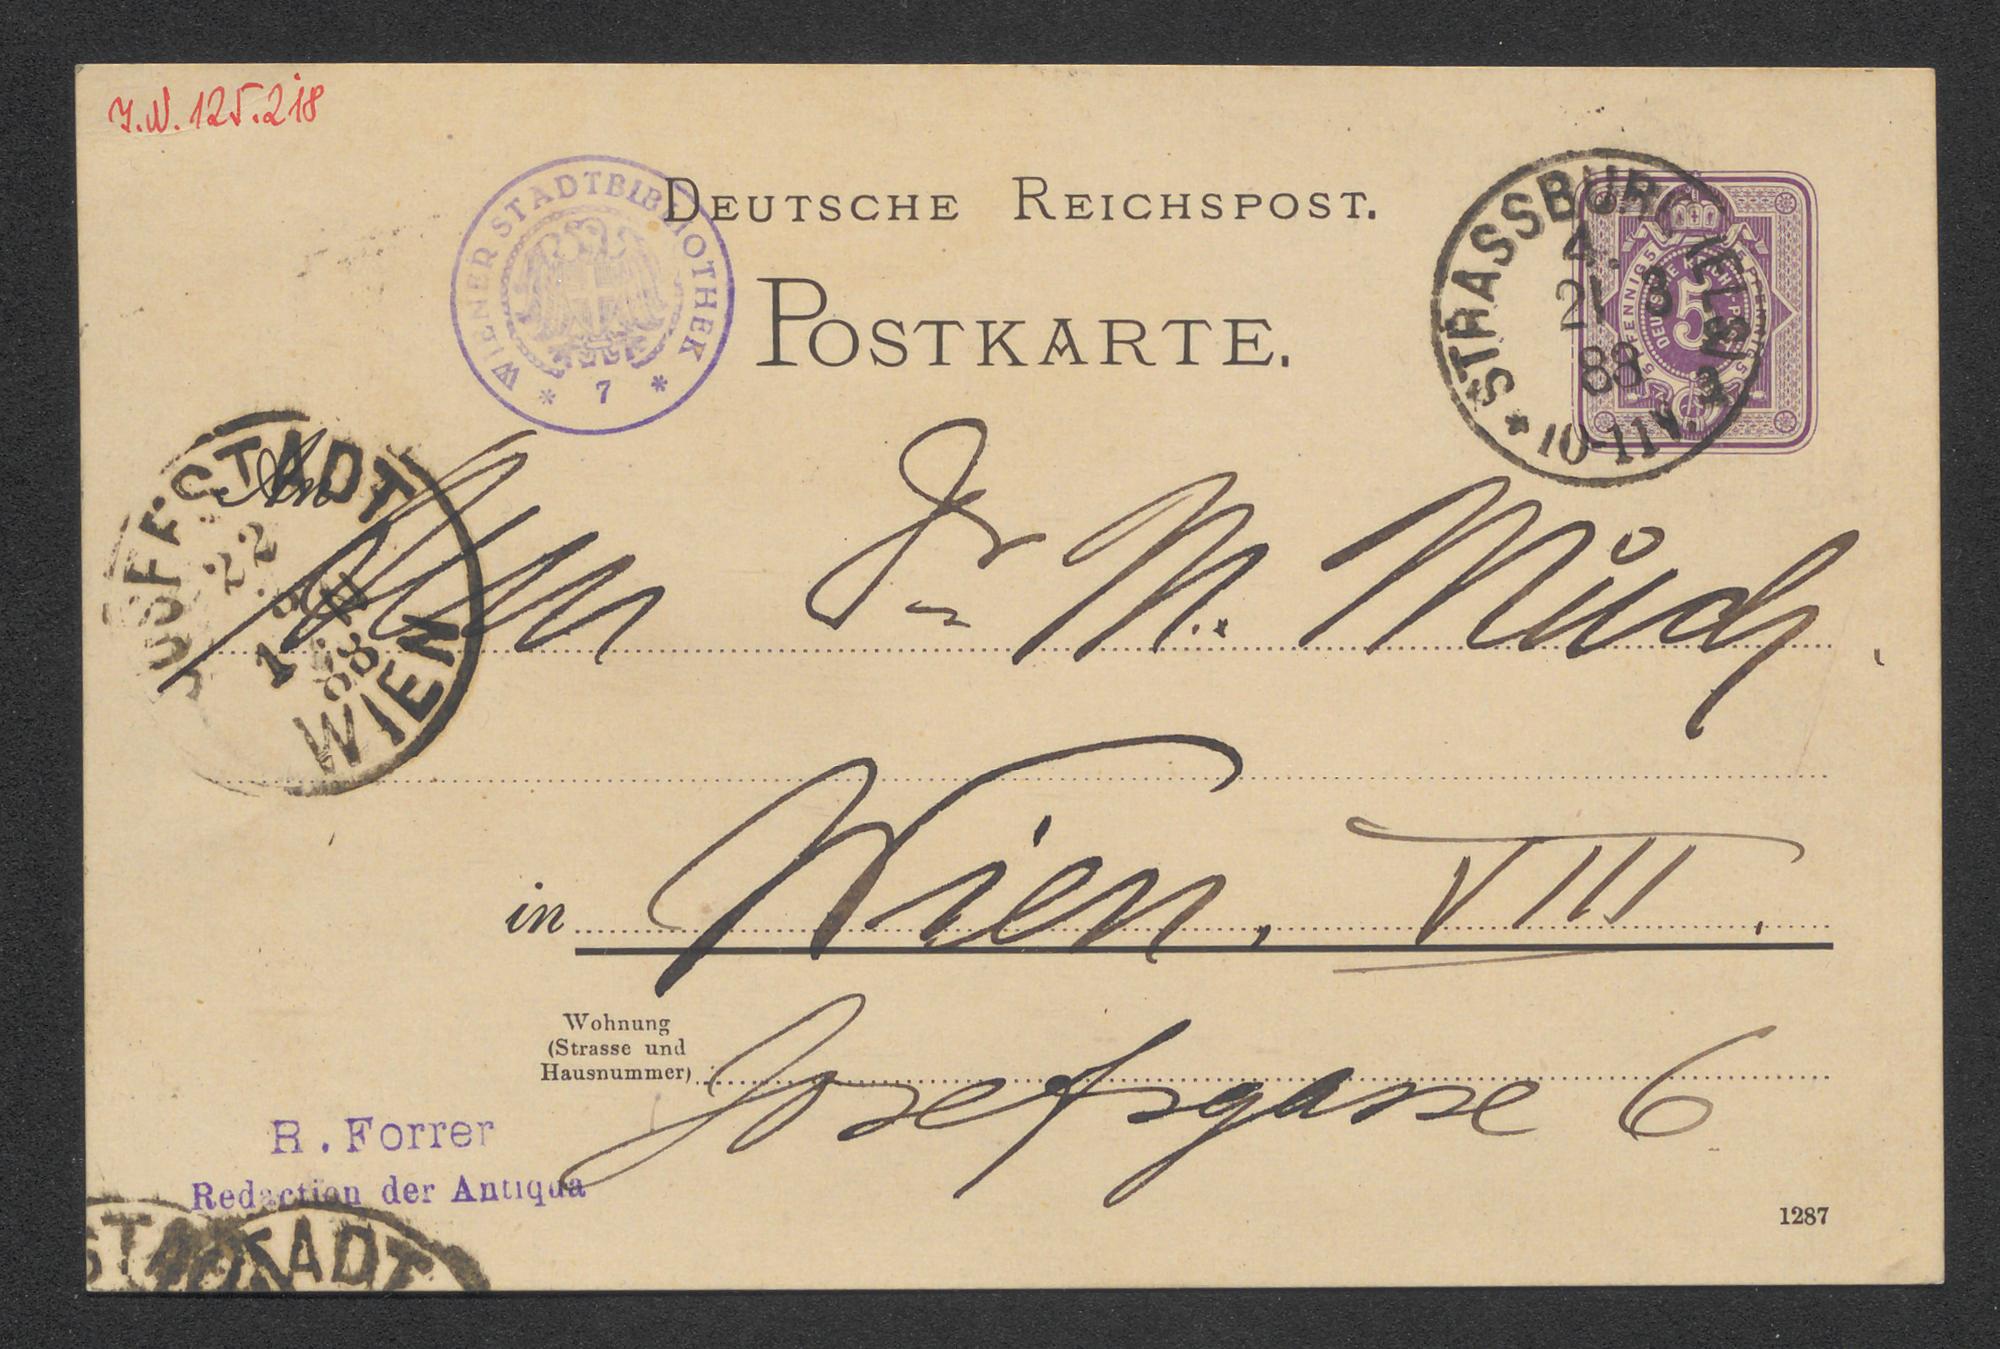 J.N. 125.218
WIENER STADTBIBLIOTHEK
* 7 *
DEUTSCHE REICHSPOST.
POSTKARTE.
STRASSBURG (ELS)
4.
21 3
88
* 10-11 V.
5 PFENNIG 5
DEUTSCHE REICHS-POST
5
JOSEFSTADT
22
88
WIEN
An
Herrn Dr M. Much.
in Wien, VIII.
Wohnung
(Strasse und
Hausnummer)
Josefsgasse 6
R. Forrer
Redaction der Antiqua
STADT
1287